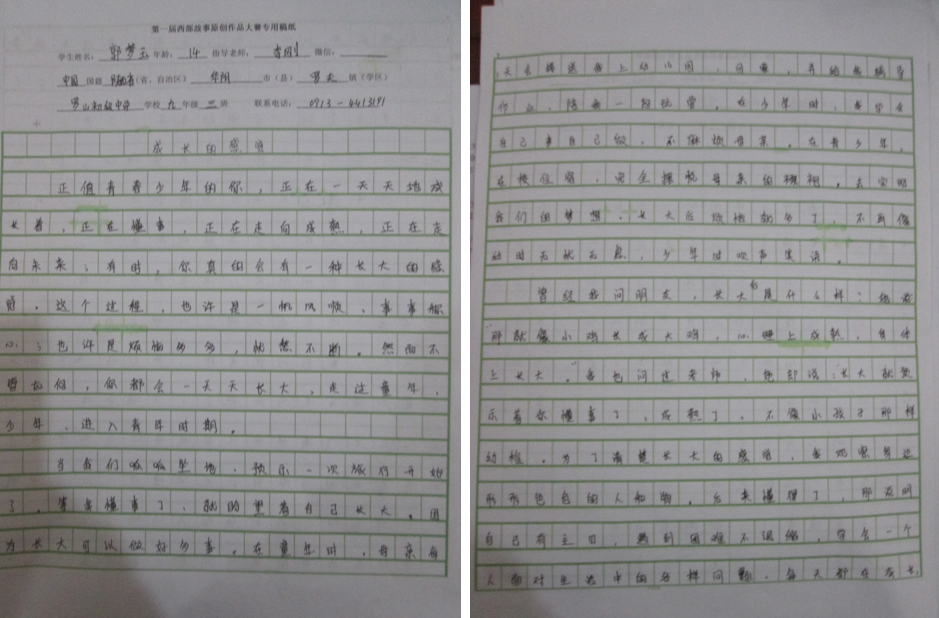 第一届西部故事原创作品大赛专用稿纸
学生姓名：郭梦玉 年龄：14 指导老师：李刚 微信：
中国 国籍 陕西省（省、自治区） 华阴 市（县） 罗夫 镇（学区）
罗山初级中学 学校 九 年级 三 班 联系电话：0913-4413191
成长的感悟
正值青春少年的你，正在一天天地成
长着，正在懂事，正在走向成熟，正在走
向未来；有时，你真的会有一种长大的感
觉。这个过程，也许是一帆风顺，事事称
心；也许是烦恼多多，愁愁不断。然而不
管如何，你都会一天天长大，走过童年，
少年，进入青年时期。
当我们呱呱坠地，预示一次旅行开始
了，等我懂事了，就盼望着自己长大。因
为长大可以做好多事。在童年时，母亲每
天去接送我上幼儿园，回家，并给我辅导
作业，陪我一起玩耍。在少年时，我学会
自己事自己做，不麻烦母亲。在青少年，
在校住宿，完全摆脱母亲的襁褓，去实现
我们的梦想。长大后烦恼就多了，不再像
幼时无忧无虑，少年时欢声笑语。
曾经我问朋友，长大的是什么样：他说
那就像小鸡长成大鸡，心理上成熟，身体
上长大。"我也问过老师，他却说：长大就预
示着你懂事了，成熟了，不像小孩子那样
幼稚。为了清楚长大的感悟，我观察身边
形形色色的人和物，后来懂得了，那表明
自己有主见，遇到困难不退缩，学会一个
人面对生活中的各样问题，每天都在成长，